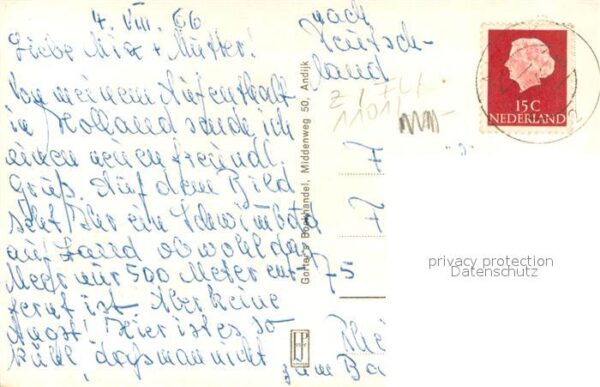 4. VIII. 66
Liebe Mia + Mutter!
Von meinem Aufenthalt
in Holland sende ich
einen neuen freundl.
Gruß. Auf dem Bild
seht Ihr ein Schwimmbad
auf Land obwohl das
Meer nur 500 Meter ent-
fernt ist. Aber keine
Angst! Hier ist es so
kühl, dass man nicht
zum Ba
nach
Deutsch-
land
Gorter's Boekhandel, Middenweg 50, Andijk
15 C
NEDERLAND
75
Rhei
privacy protection
Datenschutz